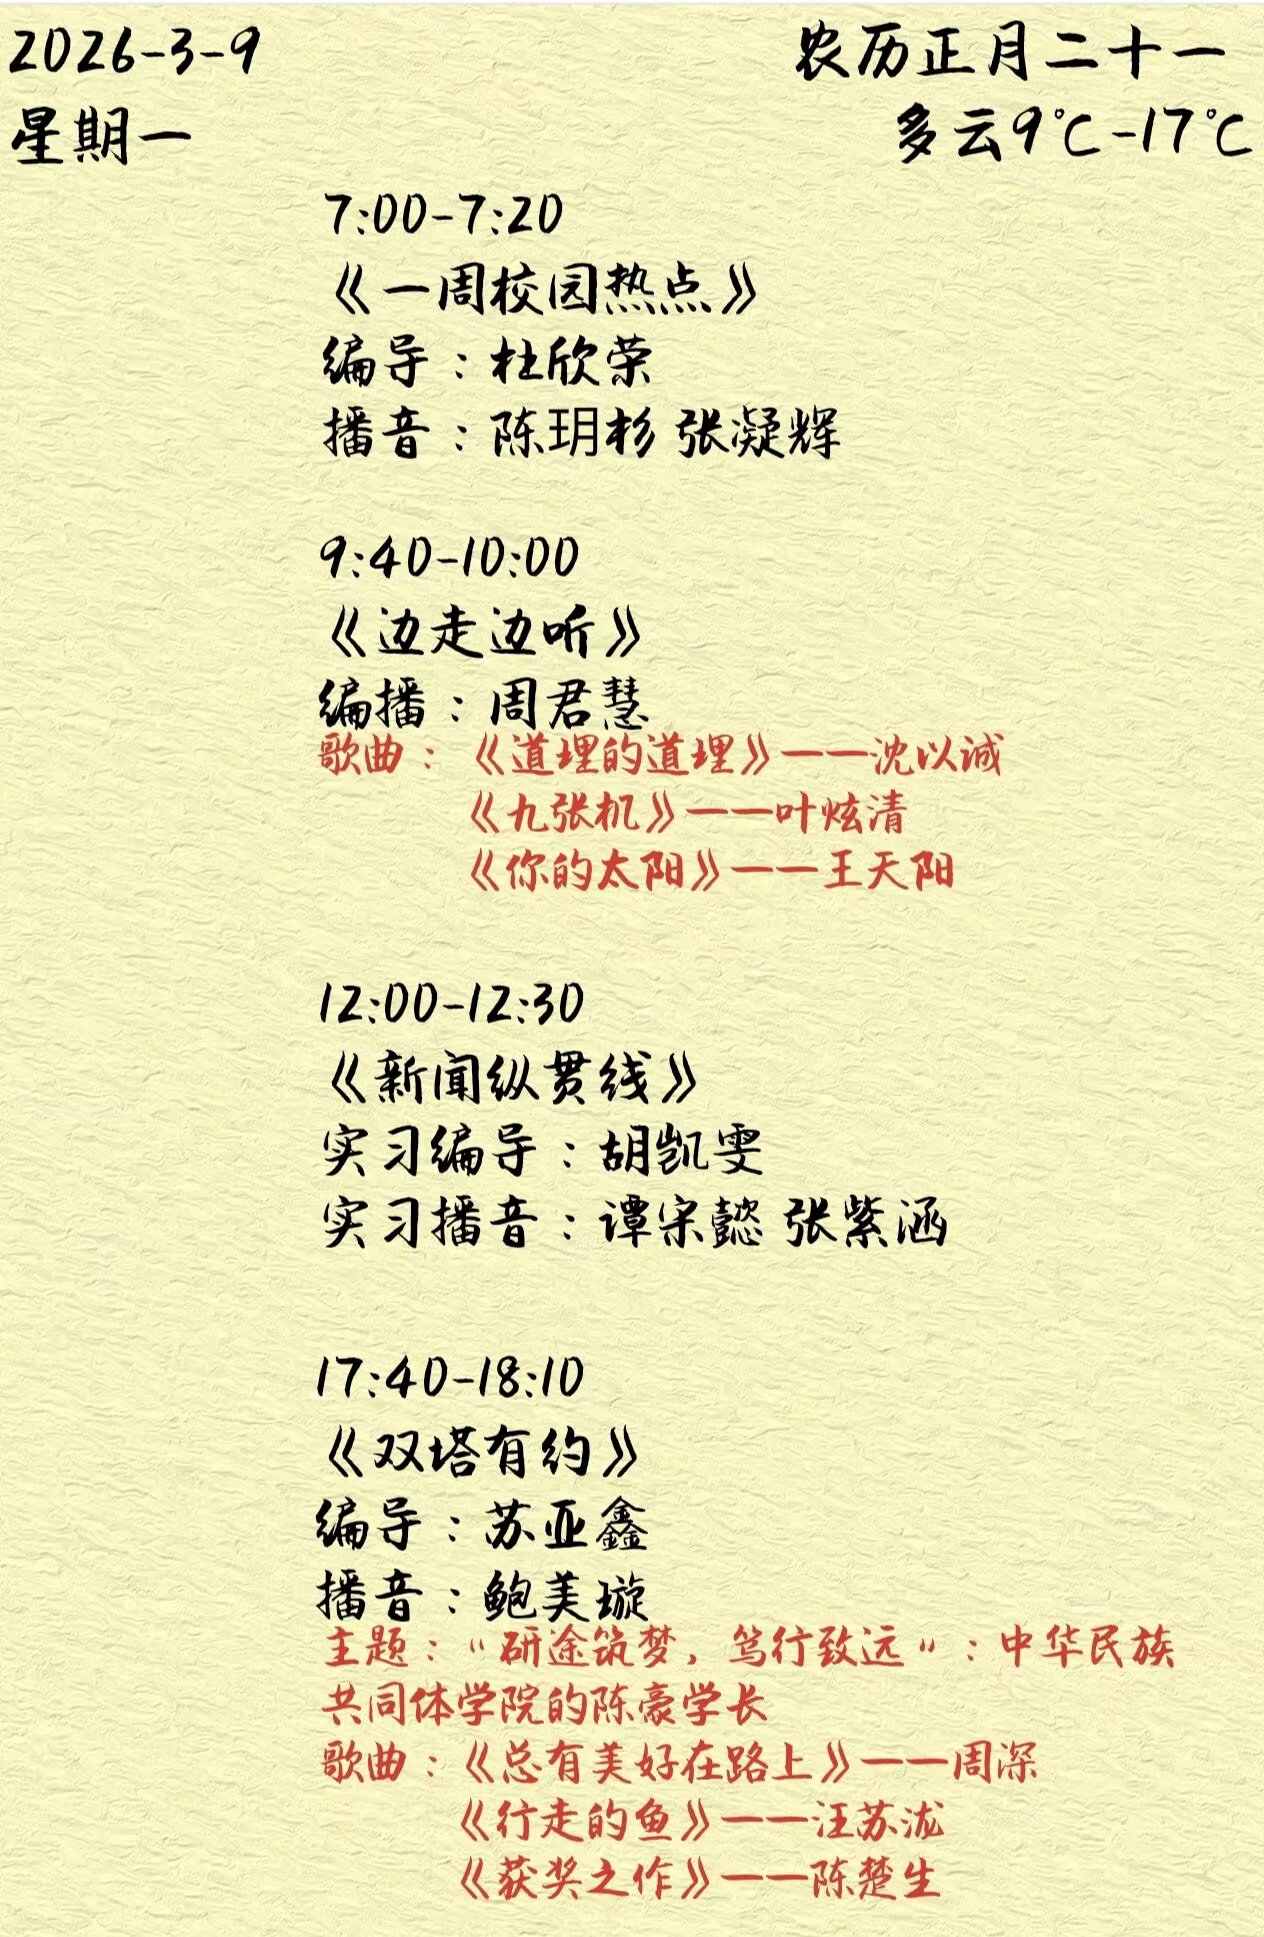 2026-3-9
农历正月二十一
星期一
多云9℃-17℃
7:00-7:20
《一周校园热点》
编导：杜欣荣
播音：陈玥杉 张凝辉
9:40-10:00
《边走边听》
编播：周君慧
歌曲：《道理的道理》——沈以诚
《九张机》——叶炫清
《你的太阳》——王天阳
12:00-12:30
《新闻纵贯线》
实习编导：胡凯雯
实习播音：谭宋懿 张紫涵
17:40-18:10
《双塔有约》
编导：苏亚鑫
播音：鲍美璇
主题："研途筑梦，笃行致远"：中华民族
共同体学院的陈豪学长
歌曲：《总有美好在路上》——周深
《行走的鱼》——汪苏泷
《获奖之作》——陈楚生